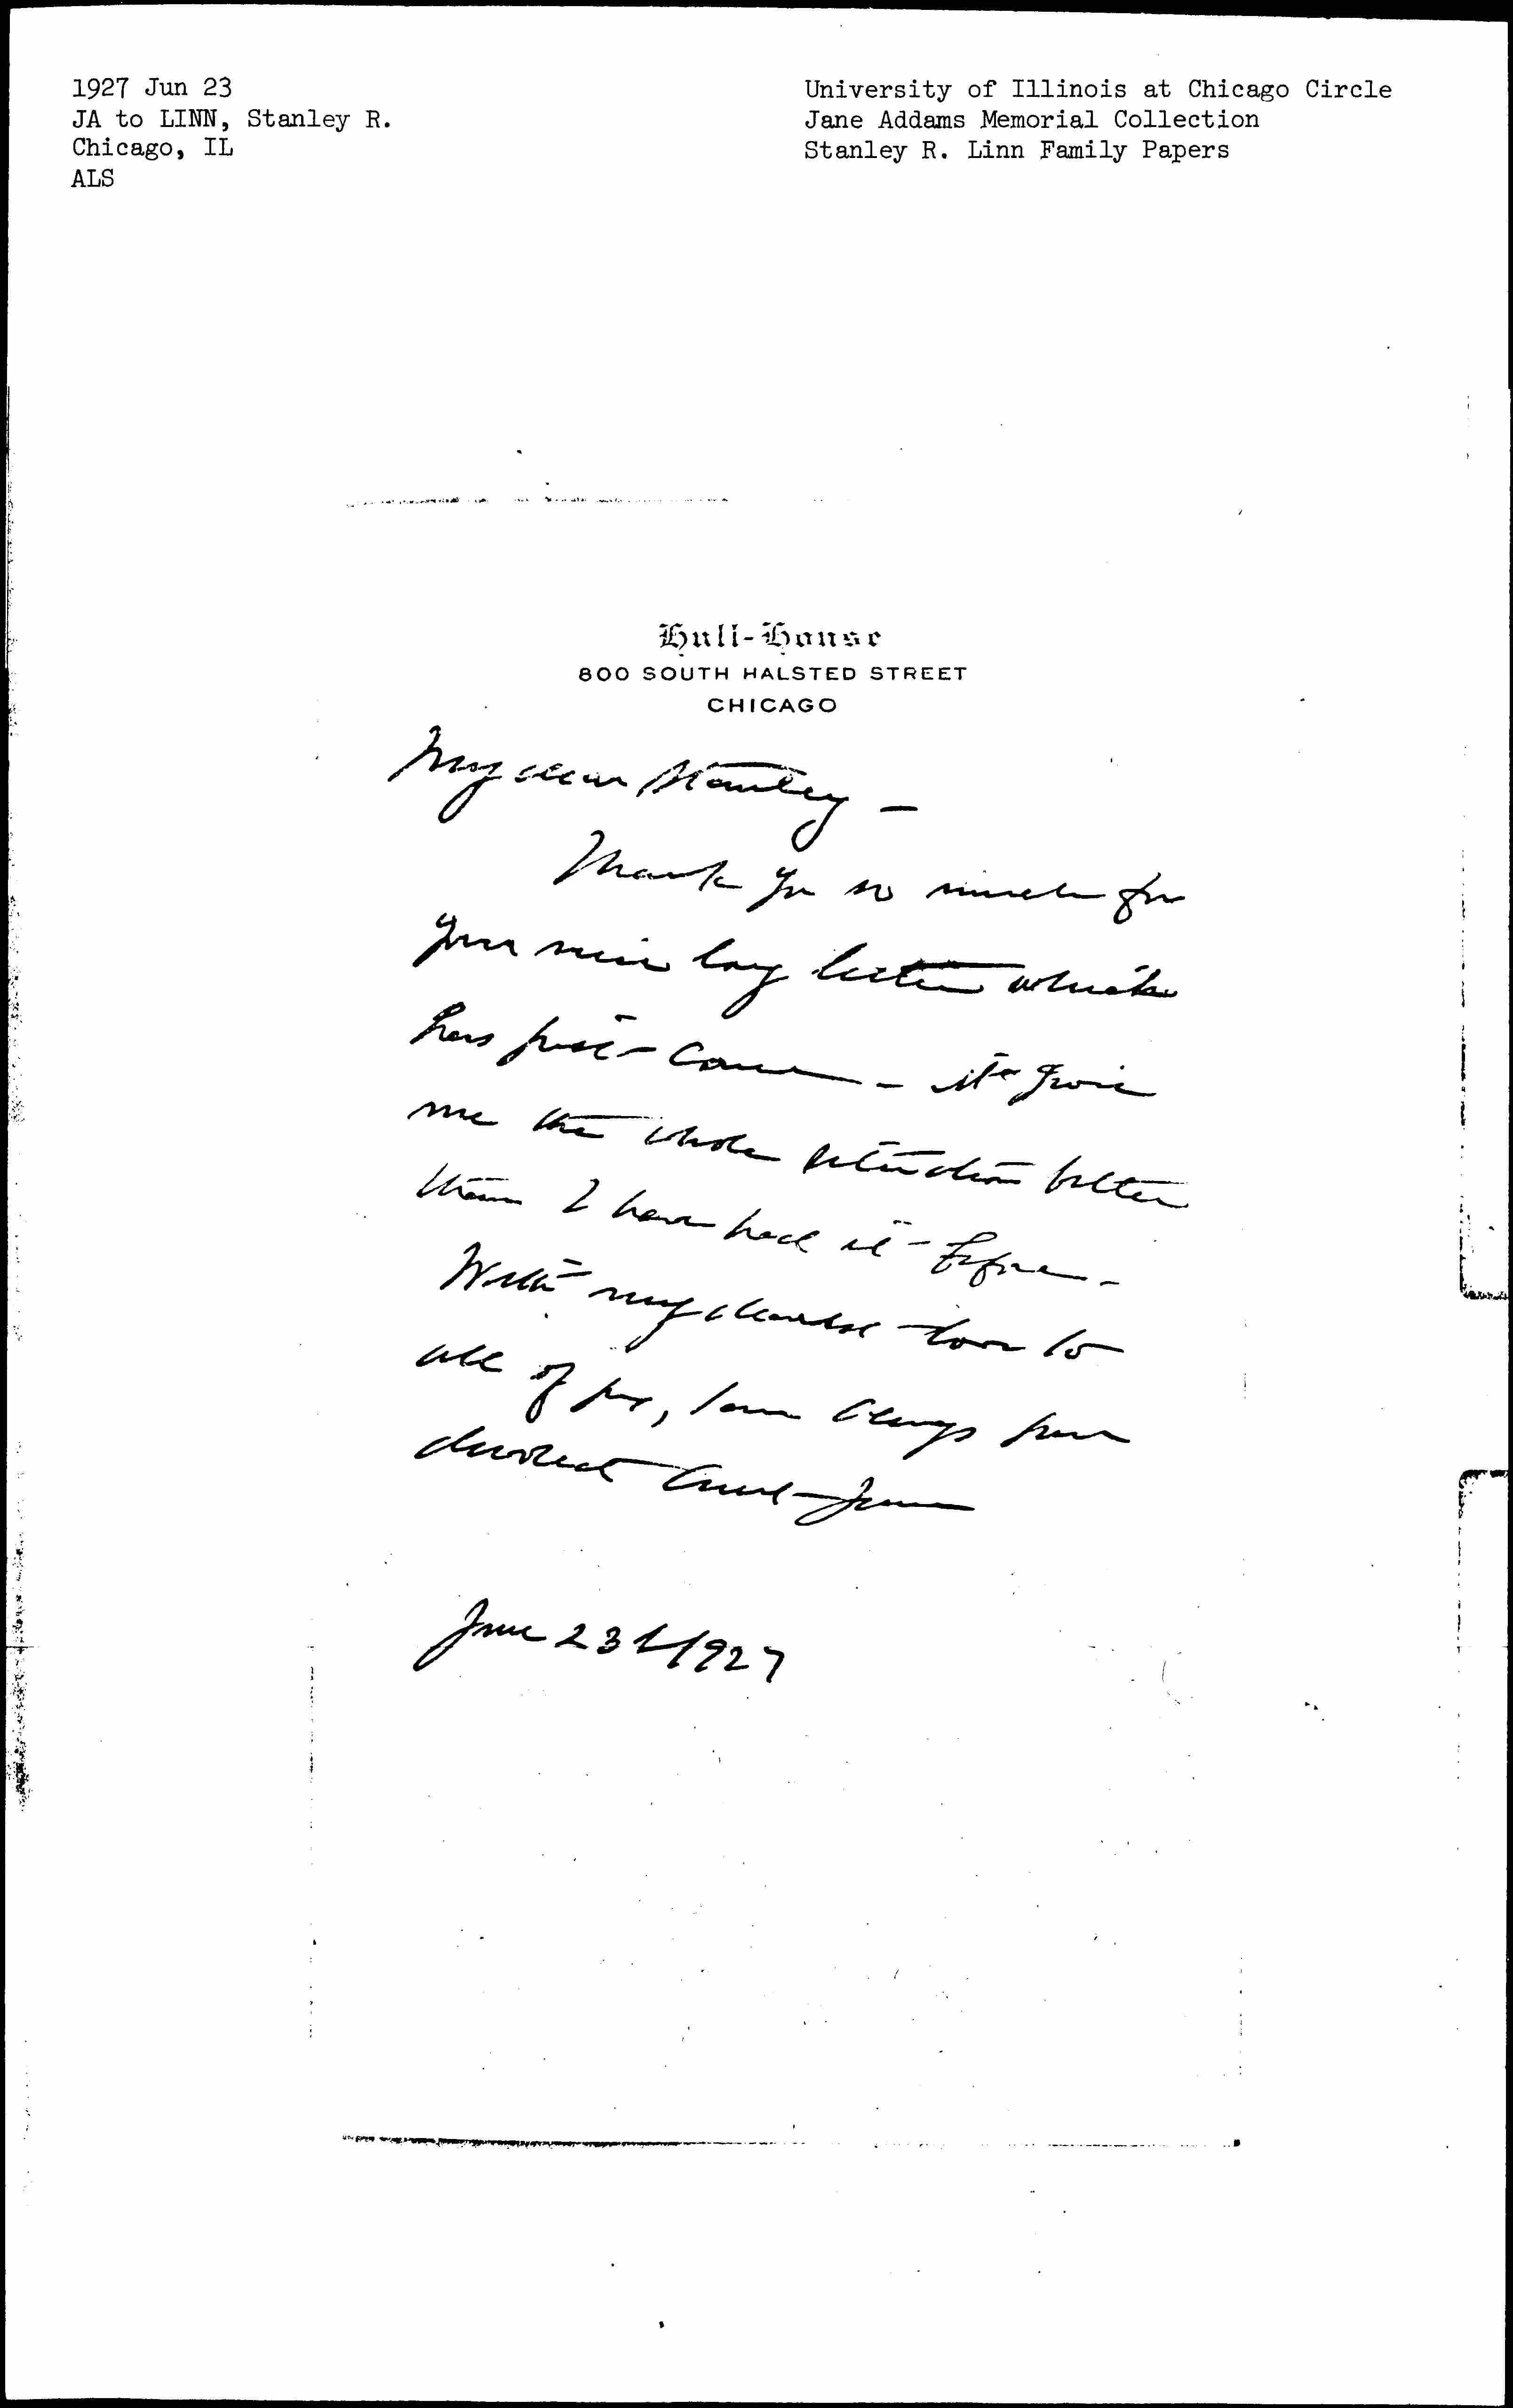 1927 Jun 23
JA to LINN, Stanley R.
Chicago, IL
ALS
University of Illinois at Chicago Circle
Jane Addams Memorial Collection
Stanley R. Linn Family Papers
Hull-House
800 SOUTH HALSTED STREET
CHICAGO
My dear Stanley -
Thank you so much for
your nice long letter which
has just come - it
me the whole situation better
than I have had it before -
With my dearest love to
all of you, I am always your
devoted Aunt Jane
June 23 1927